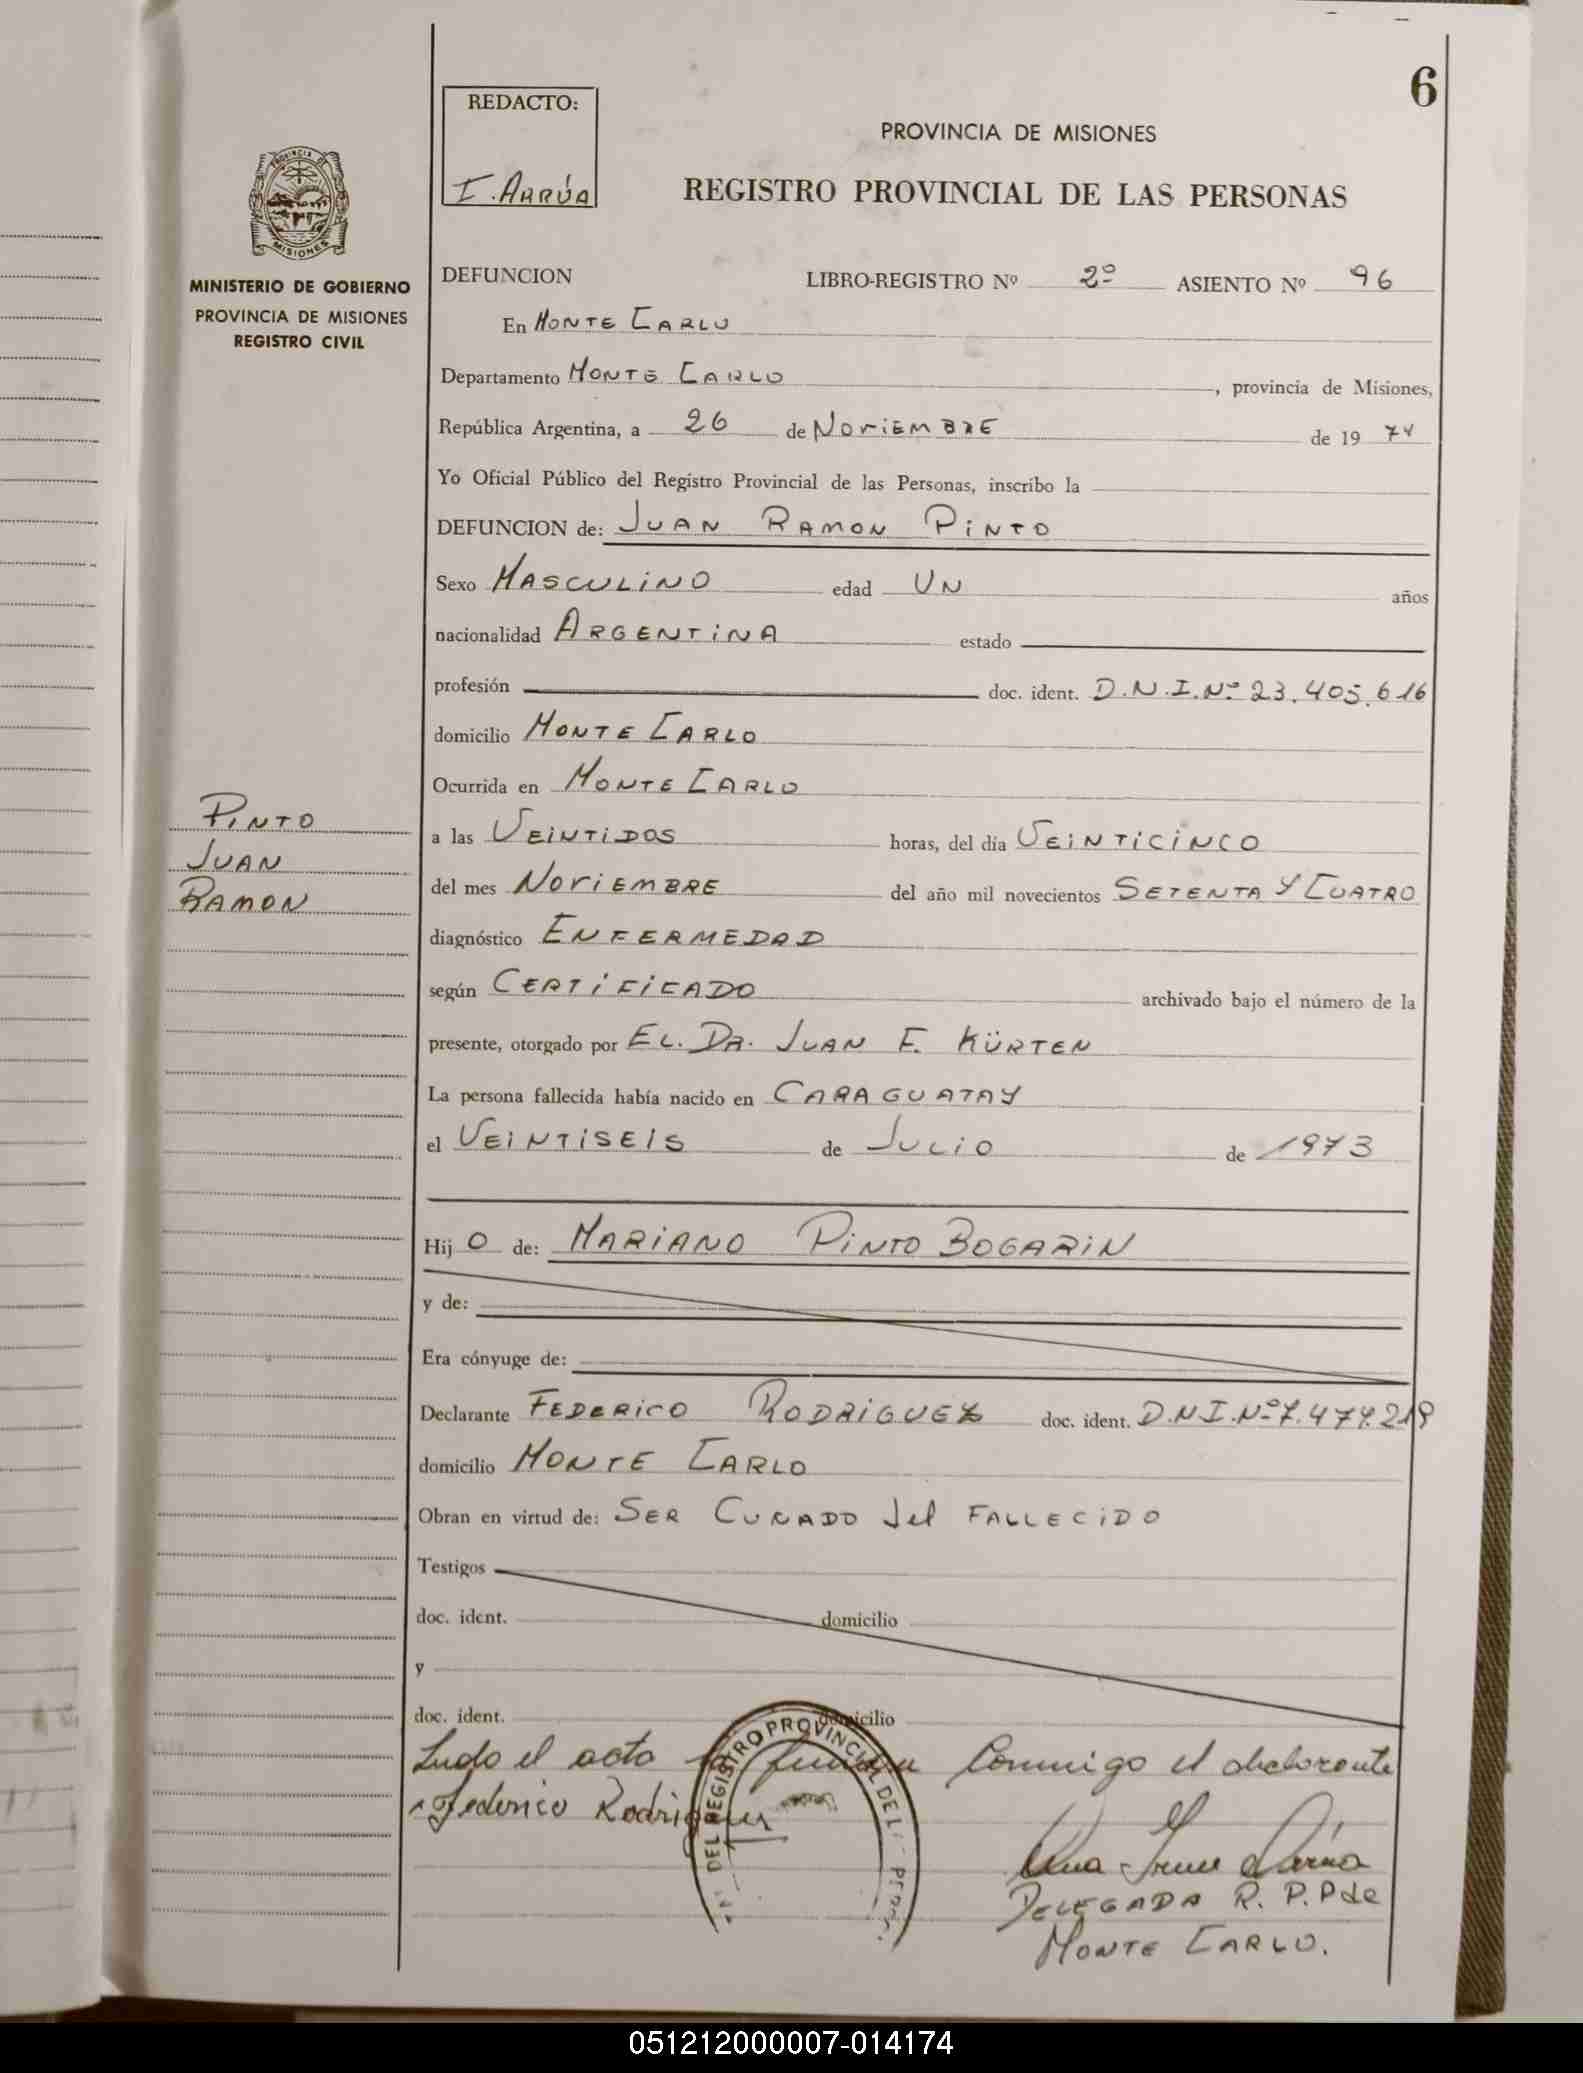 6
REDACTO:
I. ARRÚA
PROVINCIA DE MISIONES
REGISTRO PROVINCIAL DE LAS PERSONAS
PROVINCIA DE
MISIONES
MINISTERIO DE GOBIERNO
PROVINCIA DE MISIONES
REGISTRO CIVIL
DEFUNCION LIBRO-REGISTRO Nº 2º ASIENTO Nº 96
En MONTE CARLO
Departamento MONTE CARLO, provincia de Misiones,
República Argentina, a 26 de NOVIEMBRE de 1974
Yo Oficial Público del Registro Provincial de las Personas, inscribo la
DEFUNCION de: JUAN RAMON PINTO
Sexo MASCULINO edad UN años
nacionalidad ARGENTINA estado
profesión doc. ident. D.N.I. Nº 23.405.616
domicilio MONTE CARLO
Ocurrida en MONTE CARLO
PINTO
JUAN
RAMON
a las VEINTIDOS horas, del día VEINTICINCO
del mes NOVIEMBRE del año mil novecientos SETENTA Y CUATRO
diagnóstico ENFERMEDAD
según CERTIFICADO archivado bajo el número de la
presente, otorgado por EL. DR. JUAN F. KÜRTEN
La persona fallecida había nacido en CARAGUATAY
el VEINTISEIS de JULIO de 1973
Hij O de: MARIANO PINTO BOGARIN
y de:
Era cónyuge de:
Declarante FEDERICO RODRIGUEZ doc. ident. D.N.I. Nº 7.474.219
domicilio MONTE CARLO
Obran en virtud de: SER CUNADO del FALLECIDO
Testigos
doc. ident. domicilio
y
doc. ident. domicilio
Leido el acta firma Conmigo el declarante
Federico Rodriguez
DEL REGISTRO PROVINCIAL DE L
Ana Irene Arrúa
DELEGADA R. P. P de
MONTE CARLO.
051212000007-014174